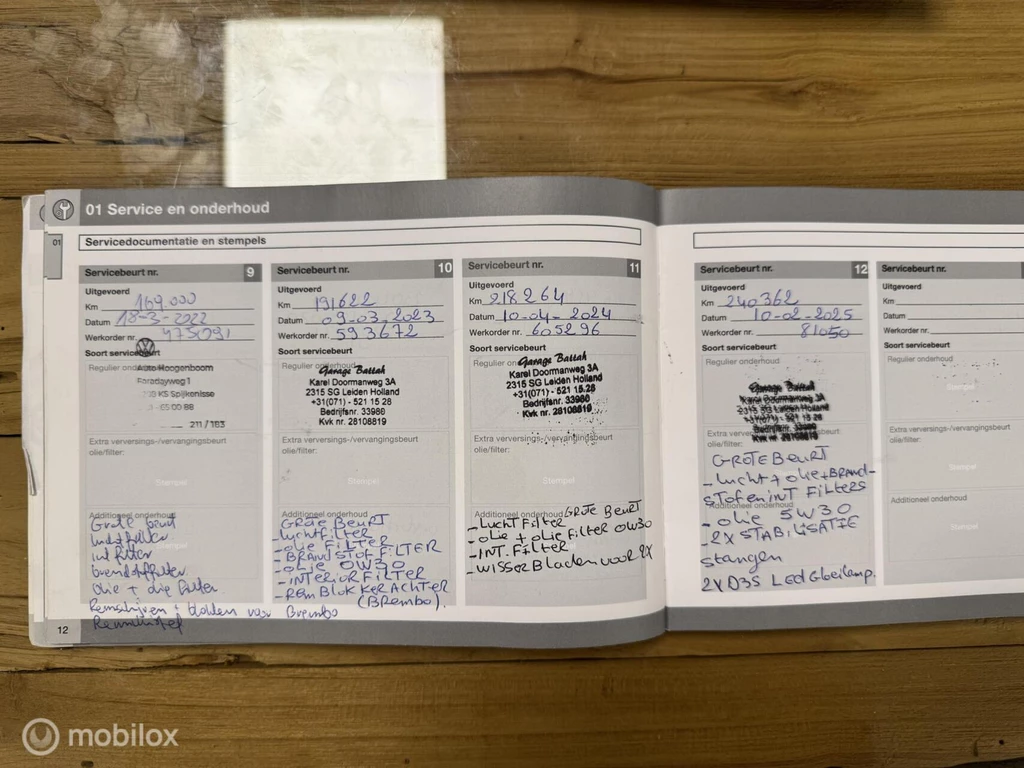 01 Service en onderhoud
01
Servicedocumentatie en stempels
Servicebeurt nr. 9
Uitgevoerd
Km 169.000
Datum 18-3-2022
Werkorder nr. 475091
Soort servicebeurt
Regulier onderhoud
Auto Hoogenboom
Faradayweg 1
KS Spijkenisse
65 00 88
211 / 183
Extra verversings-/vervangingsbeurt
olie/filter:
Stempel
Additioneel onderhoud
Grote beurt
luchtfilter
int filter
brandstoffilter
Olie + olie filter
Remschijven + blokken voor Brembo
12
Servicebeurt nr. 10
Uitgevoerd
Km 191622
Datum 09-03-2023
Werkorder nr. 593672
Soort servicebeurt
Regulier onderhoud
Garage Battah
Karel Doormanweg 3A
2315 SG Leiden Holland
+31(071) - 521 15 28
Bedrijfsnr. 33980
Kvk nr. 28108819
Extra verversings-/vervangingsbeurt
olie/filter:
Stempel
Additioneel onderhoud
GROTE BEURT
- luchtfilter
- olie FILTER
- BRANDSTOF FILTER
- olie 0W30
- INTERIOR FILTER
- REM BLOKKEN ACHTER
(BREMBO).
Servicebeurt nr. 11
Uitgevoerd
Km 218264
Datum 10-04-2024
Werkorder nr. 605296
Soort servicebeurt
Regulier on
Garage Battah
Karel Doormanweg 3A
2315 SG Leiden Holland
+31(071) - 521 15 28
Bedrijfsnr. 33980
Kvk nr. 28108819
Extra verversings-/vervangingsbeurt
olie/filter:
Stempel
Additioneel onderhoud
GROTE BEURT
- LUCHT FILTER
- olie + olie FILTER 0W30
- INT. FILTER
- WISSER BLADEN VOOR 2X
Servicebeurt nr. 12
Uitgevoerd
Km 240362
Datum 10-02-2025
Werkorder nr. 81050
Soort servicebeurt
Regulier onderhoud
Garage Battah
Karel Doormanweg 3A
2315 SG Leiden Holland
+31(071) - 521 15 28
Bedrijfsnr. 33980
Kvk nr. 28108819
Extra verversings-/vervangingsbeurt
olie/filter:
GROTE BEURT
- lucht + olie + BRAND-
STOF en INT FILTERS
Additioneel onderhoud
- olie 5W30
- 2X STABILISATIE
stangen
2X D3S Led Gloeilamp.
Servicebeurt nr.
Uitgevoerd
Km
Datum
Werkorder nr.
Soort servicebeurt
Regulier onderhoud
Stempel
Extra verversings-/vervangingsbeurt
olie/filter:
Stempel
Additioneel onderhoud
Stempel
mobilox